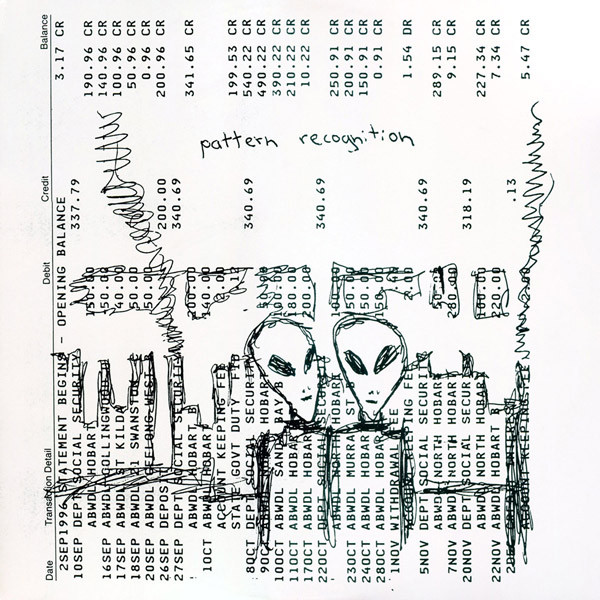 pattern recognition
Date Transaction Detail Debit Credit Balance
2SEP1996 STATEMENT BEGINS - OPENING BALANCE 3.17 CR
10SEP DEP SOCIAL SECURITY 337.79
ABWDL HOBART 150.00 190.96 CR
16SEP ABWDL COLLINGWOOD 50.00 140.96 CR
17SEP ABWDL ST KILDA 40.00 100.96 CR
18SEP ABWDL 21 SWANSTON 50.00 50.96 CR
20SEP ABWDL GEELONG WEST 50.00 0.96 CR
26SEP DEPOS 200.00 200.96 CR
27SEP DEP SOCIAL SECURITY 340.69
ABWDL HOBART B 200.00 341.65 CR
1OCT ABWDL HOBART 140.00
ACCOUNT KEEPING FEE
STATE GOVT DUTY 199.53 CR
8OCT DEP SOCIAL SECURITY 340.69 540.22 CR
9OCT HOBART 50.00 490.22 CR
10OCT ABWDL BAY B 100.00 390.22 CR
11OCT ABWDL HOBART 180.00 210.22 CR
17OCT ABWDL HOBART 200.00 10.22 CR
22OCT DEP SOCIAL 340.69
ABWDL 250.91 CR
23OCT ABWDL MURRAY ST 50.00 200.91 CR
24OCT ABWDL HOBAR 50.00 150.91 CR
28OCT ABWDL HOBAR 150.00 0.91 CR
1NOV WITHDRAWAL FEE
FEE 1.54 DR
5NOV DEP SOCIAL SECURIT 340.69
ABWDL NORTH HOBART 289.15 CR
7NOV ABWDL NORTH HOBART 280.00 9.15 CR
20NOV DEP SOCIAL SECURIT 318.19
ABWDL NORTH HOBART 100.00 227.34 CR
22NOV ABWDL HOBART B 220.00 7.34 CR
.13 5.47 CR